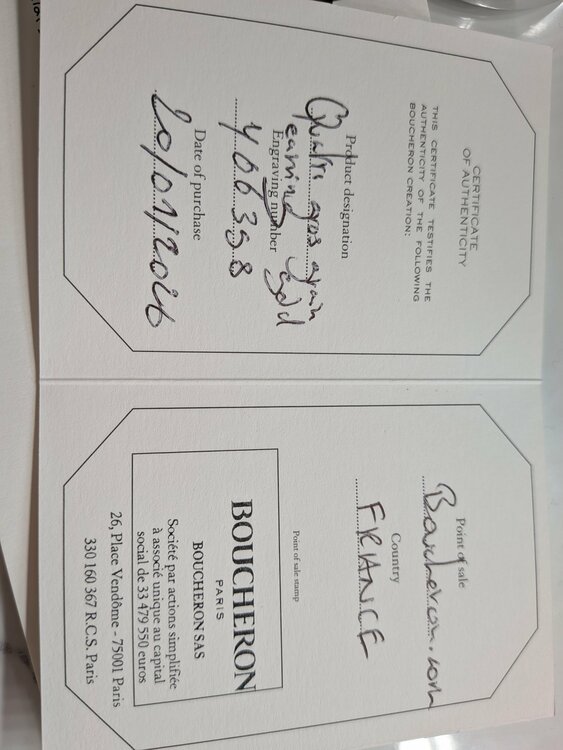 CERTIFICATE
OF AUTHENTICITY
THIS CERTIFICATE TESTIFIES THE
AUTHENTICITY OF THE FOLLOWING
BOUCHERON CREATION:
Product designation
earring gold
Engraving number
Date of purchase
20/01/2026
Point of sale
Boucheron.com
Country
FRANCE
Point of sale stamp
BOUCHERON
PARIS
BOUCHERON SAS
Société par actions simplifiée
à associé unique au capital
social de 33 479 550 euros
26, Place Vendôme - 75001 Paris
330 160 367 R.C.S. Paris